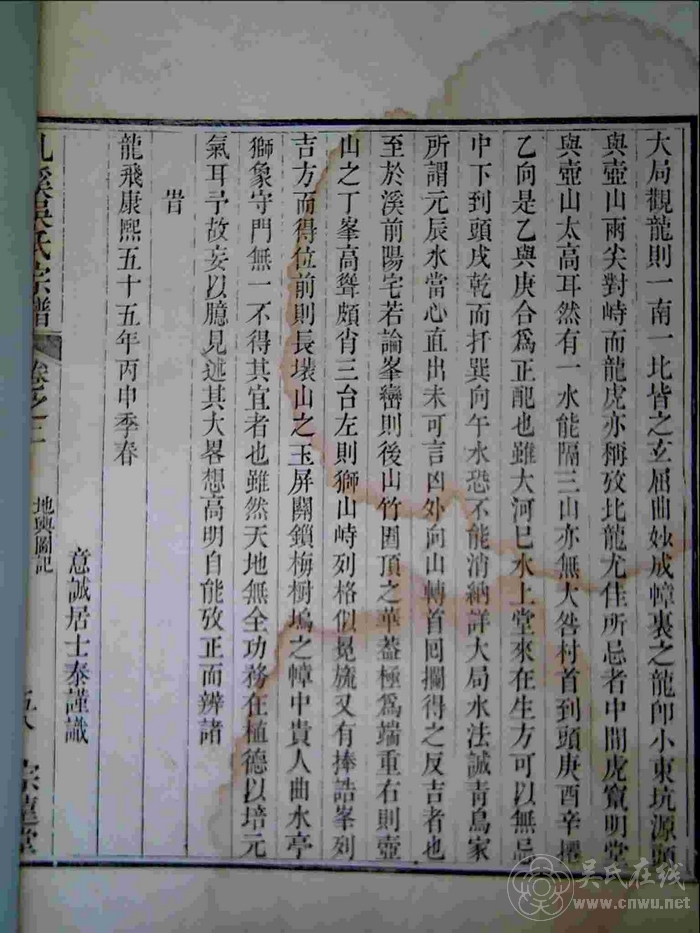 大局觀龍則一南一北皆之玄屈曲妙成幛裏之龍卽小東坑源頭
與壺山兩尖對峙而龍虎亦稱攷北龍尤佳所忌者中間虎竄明堂
與壺山太高耳然有一水能隔三山亦無大咎村首到頭庚酉辛擺
乙向是乙與庚合爲正配也雖大河巳水上堂來在生方可以無忌
中下到頭戌乾而扦巽向午水恐不能消納詳大局水法誠青烏家
所謂元辰水當心直出未可言凶外向山轉首囘攔得之反吉者也
至於溪前陽宅若論峯巒則後山竹園頂之華葢極爲端重右則壺
山之丁峯高聳頗肖三台左則獅山峙列格似冕旒又有捧誥峯列
吉方而得位前則長埭山之玉屏關鎖梅樹塢之幛中貴人曲水亭
獅象守門無一不得其宜者也雖然天地無全功務在植德以培元
氣耳予故妄以臆見述其大畧想高明自能攷正而辨諸
旹
龍飛康熙五十五年丙申季春
意誠居士泰謹識
溪吳氏宗譜
卷之二
地輿圖記
五八
吴氏在线
www.cnwu.net